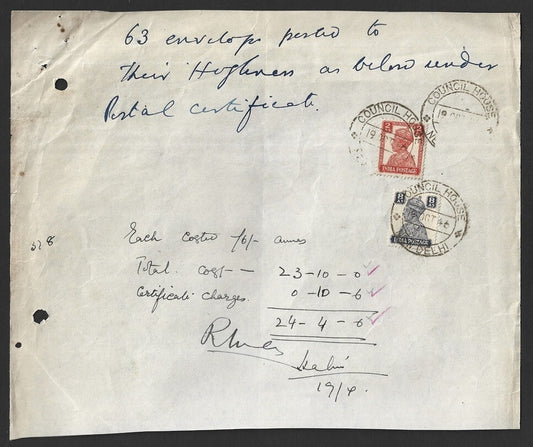 63 envelops posted to
Their Highness as below under
Postal certificate.
COUNCIL HOUSE
19 OCT
COUNCIL HOUSE
19
2
INDIA POSTAGE
COUNCIL HOUSE
19 OCT 46
DELHI
8
INDIA POSTAGE
Each costed /6/- annas
Total cost - 23-10-0
Certificate charges. 0-10-6
24-4-6
19/x.